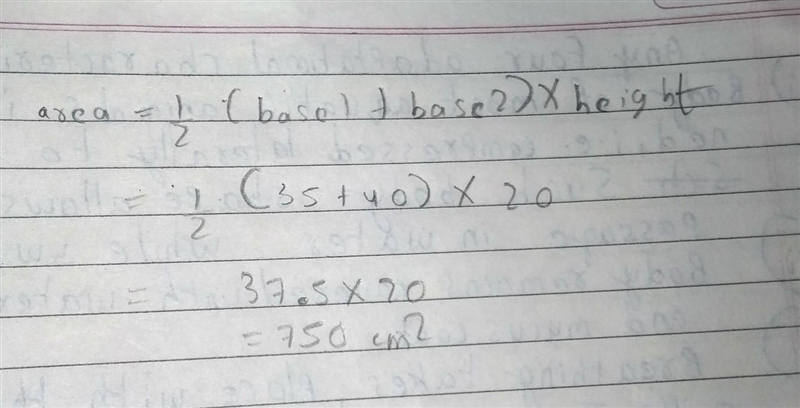 area = 1/2 (base1 + base2) × height
= 1/2 (35 + 40) × 20
= 37.5 × 20
= 750 cm²